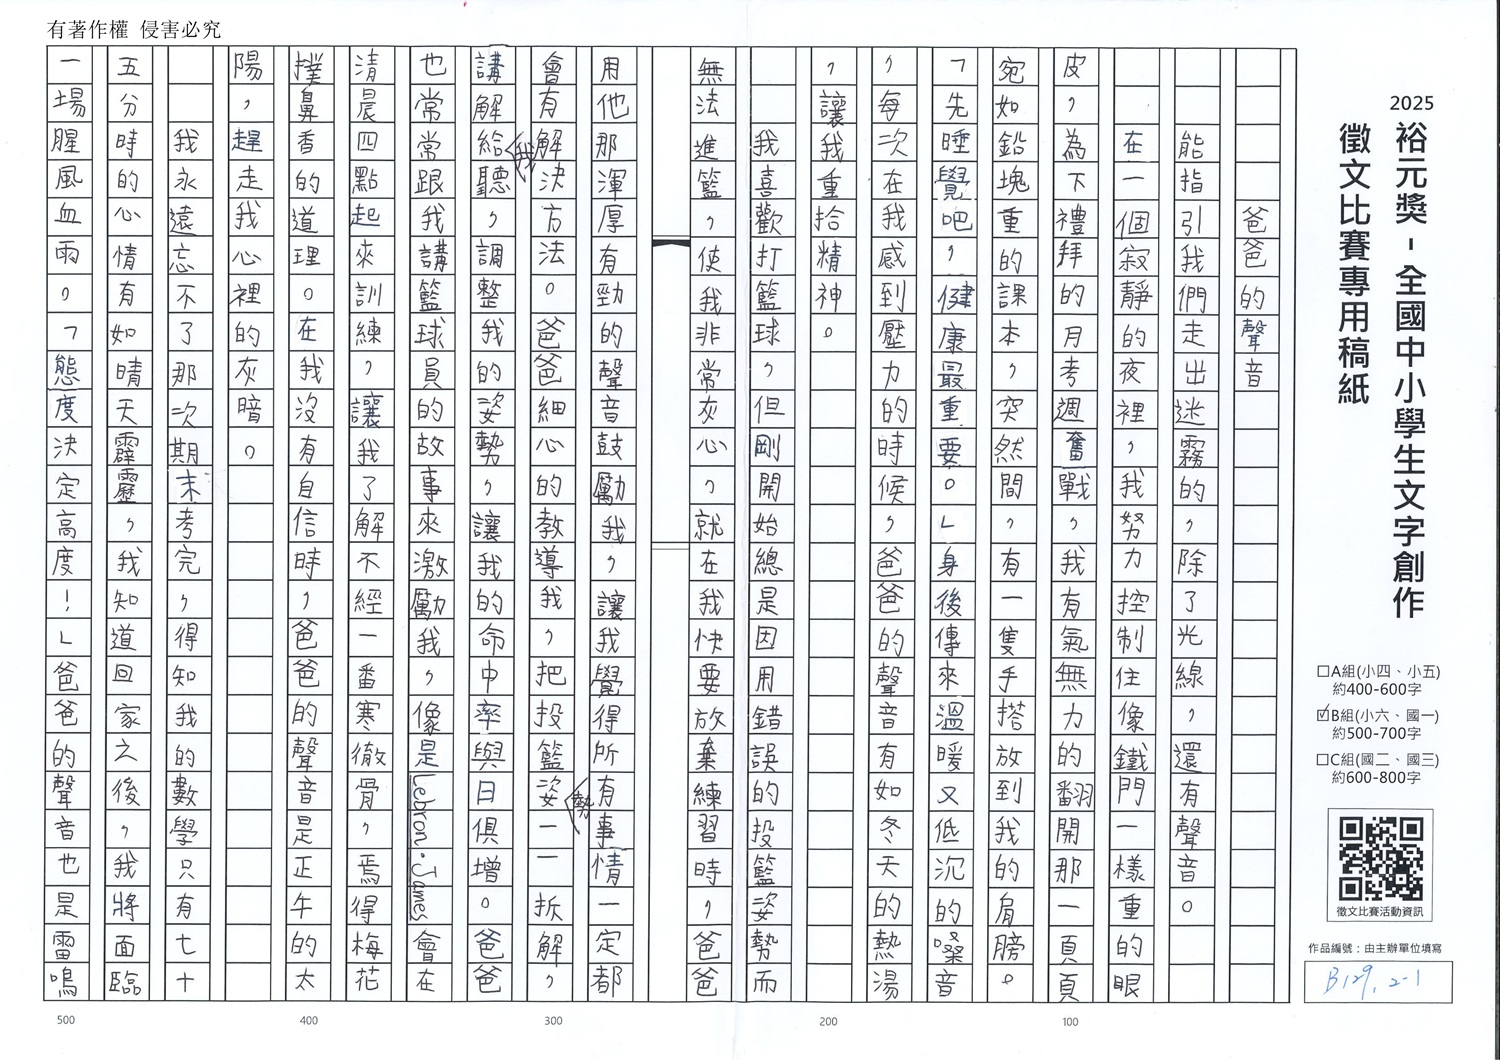 有著作權 侵害必究
2025
裕元獎-全國中小學生文字創作
徵文比賽專用稿紙
□A組(小四、小五)
約400-600字
☑B組(小六、國一)
約500-700字
□C組(國二、國三)
約600-800字
徵文比賽活動資訊
作品編號：由主辦單位填寫
B129, 2-1
爸爸的聲音
能指引我們走出迷霧的，除了光線，還有聲音。
在一個寂靜的夜裡，我努力控制住像鐵門一樣重的眼
皮，為下禮拜的月考週奮戰，我有氣無力的翻開那一頁頁
宛如鉛塊重的課本，突然間，有一隻手搭放到我的肩膀。
「先睡覺吧，健康最重要。」身後傳來溫暖又低沉的嗓音
，每次在我感到壓力的時候，爸爸的聲音有如冬天的熱湯
，讓我重拾精神。
我喜歡打籃球，但剛開始總是因用錯誤的投籃姿勢而
無法進籃，使我非常灰心。就在我快要放棄練習時，爸爸
用他那渾厚有勁的聲音鼓勵我，讓我覺得所有事情一定都
會有解決方法。爸爸細心的教導我，把投籃姿勢一一拆解，
講解給我聽，調整我的姿勢，讓我的命中率與日俱增。爸爸
也常常跟我講籃球員的故事來激勵我，像是Lebron·James會在
清晨四點起來訓練，讓我了解不經一番寒徹骨，焉得梅花
撲鼻香的道理。在我沒有自信時，爸爸的聲音是正午的太
陽，趕走我心裡的灰暗。
我永遠忘不了那次期末考完，得知我的數學只有七十
五分時的心情有如晴天霹靂，我知道回家之後，我將面臨
一場腥風血雨。「態度決定高度！」爸爸的聲音也是雷鳴
500
400
300
200
100